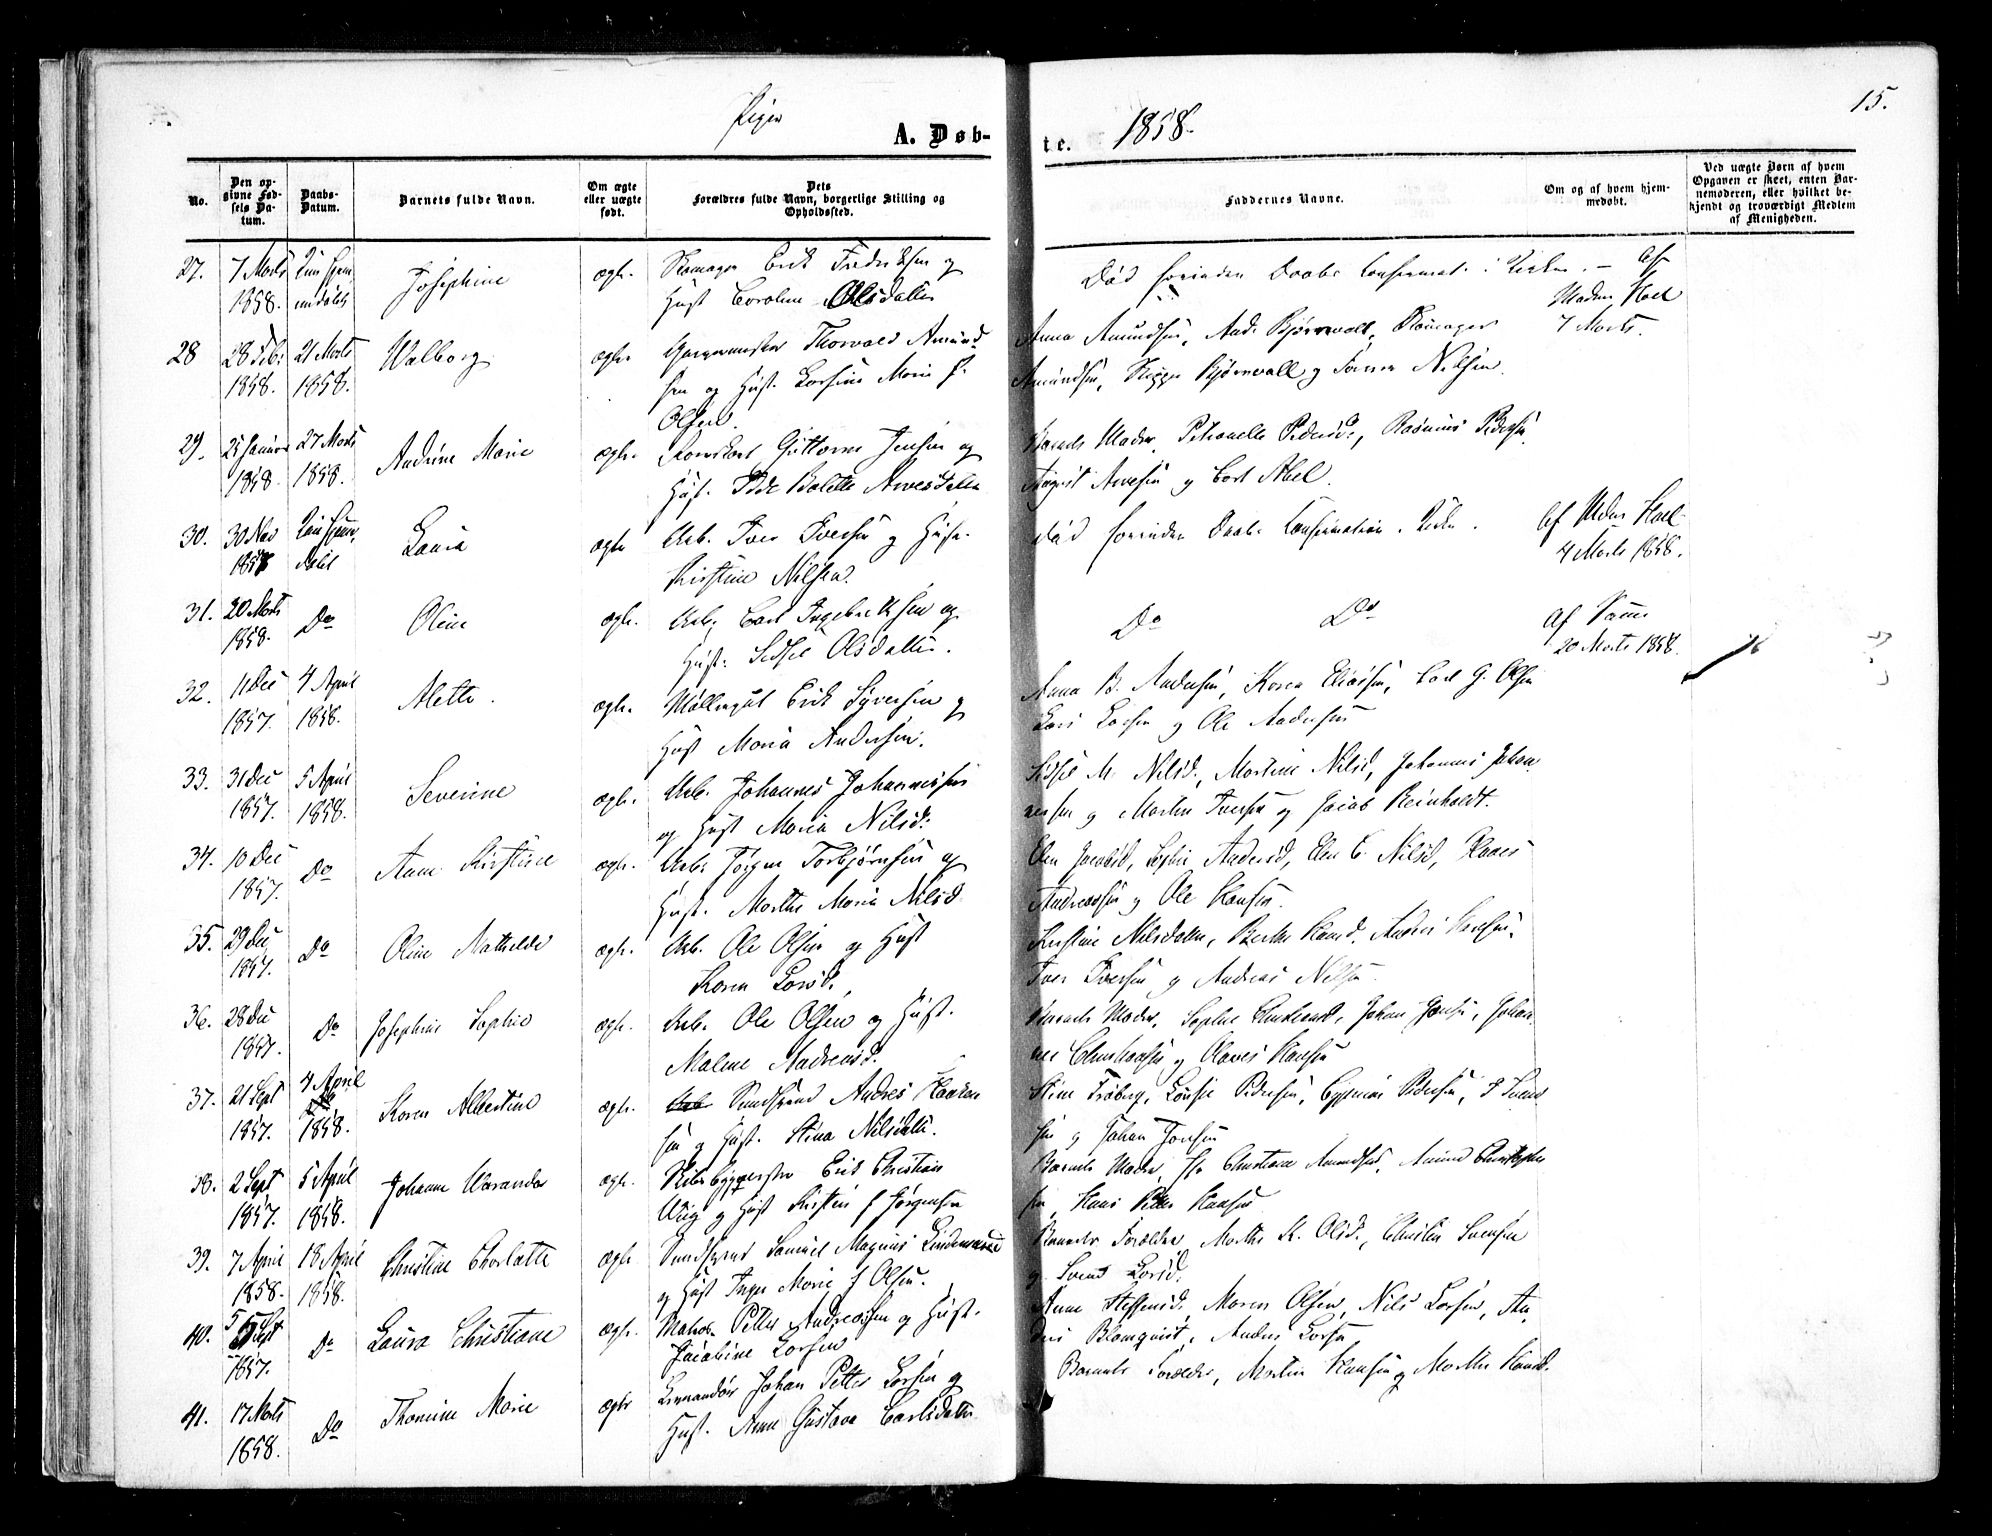 Piger
A. Døb-
te.
1858.
15.
No.
Den op-
givne Fød-
sels Da-
tum.
Daabs-
Datum.
Barnets fulde Navn.
Om ægte
eller uægte
født.
Dets
Forældres fulde Navn, borgerlige Stilling og
Opholdssted.
Faddernes Navne.
Om og af hvem hjem-
medøbt.
Ved uægte Børn af hvem
Opgaven er skeet, enten Bar-
nemoderen, eller hvilket be-
kjendt og troværdigt Medlem
af Menigheden.
27. 7 Marts Josephine ægte. Skomager Erik Fredriksen og
1858. Hust Caroline Olsdatter
Død forinden Daabs Confirmat. i Kirken. - Af
Madm Hoel
7 Marts.
28 28 Febr 21 Marts Walborg ægte Thorvald Amund-
1858. 1858. sen og Hust. Marie f.
Olsen.
Anna Amundsen, And. Bjørnvall, Skomager
Amundsen, Bjørnvall og Nilsen.
29. 25 Januar 27 Marts Andrine Marie ægte. Guttorm Jensen og
1858 1858. Hust. Balette Arnesdatter
Barnets Moder, Petronelle Pedersd., Rasmus Pedersen
August Arnesen og Carl Abel.
30. 30 Nov Laura ægte Arb. Iver Iversen og Hust.
1857 døbt Kirstine Nilsen.
død forinden Daabs Confirmation i Kirken.
Af Madm Hoel
4 Marts 1858.
31. 20 Marts Do Oline ægte. Arb. Carl Ingebretsen og
1858. Hust. Sidsel Olsdatter.
Do Do
Af Samme
20 Marts 1858.
32. 11 Dec 4 April Alette. ægte. Erik Syversen og
1857. 1858. Hust Maria Andersen.
Anna B. Andersen, Karen Eliassen, Carl G. Olsen
Lars Larsen og Ole Andersen
33. 31 Dec 5 April Severine ægte. Arb. Johannes Johannessen
1857. 1858. og Hust Maria Nilsd.
Sidsel M. Nilsd., Martine Nilsd, Johannes Johan
nessen og Martin Iversen og Jacob Reinholdt.
34. 10 Dec Do Anne Kirstine ægte. Arb. Jørgen Torbjørnsen og
1857. Hust. Marthe Maria Nilsd
Elen Jacobsd, Sophie Andersd, Elen C. Nilsd,
Andreassen og Ole Hansen.
35. 29 Dec Do Oline Mathilde ægte. Arb. Ole Olsen og Hust
1857. Karen Larsd.
Kirstine Nilsdatter, Berthe Hansd, Hansen,
Iver Iversen og Andreas Nilsen.
36. 28 Dec Do Josephine Sophie ægte. Arb. Ole Olsen og Hust.
1857. Malene Andreasd.
Barnets Moder, Sophie Johan Jensen, Johan
nes Christiansen og Hansen
37. 21 Sept 4 April Karen Albertine ægte. Andres Haaken
1857. 1858. sen og Hust. Stina Nilsdatter.
Stine Frøberg, Lovise Pedersen, Pedersen, Svend
sen og Johan Jonsen
38. 2 Sept 5 April Johanne Waranda ægte. Skibsbyggmester Erik Christian
1857. 1858. og Hust Kirsten f Jørgensen
Barnets Moder, Christiane Amundsen, Amund Christopher
sen, Hans Hansen
39. 7 April 18 April Christine Charlotte ægte Samuel Magnus
1858. 1858. og Hust Inger Marie f Olsen.
Barnets Forældre, Marthe K. Olsd., Christen Svensen
og Svend Larsd.
40. 5 Sept Do Laura Christiane ægte. Matros Petter Andreassen og Hust.
1857. Jacobine Larsen
Anne Steffensd. Maren Olsen, Nils Larsen, An
dres Blomqvist, Anders Larsen
41. 17 Marts Do Thomine Marie ægte Johan Petter Larsen og
1858. Hust. Anne Gustava Carlsdatter
Barnets Forældre, Martin Hansen og Marthe Hansd.